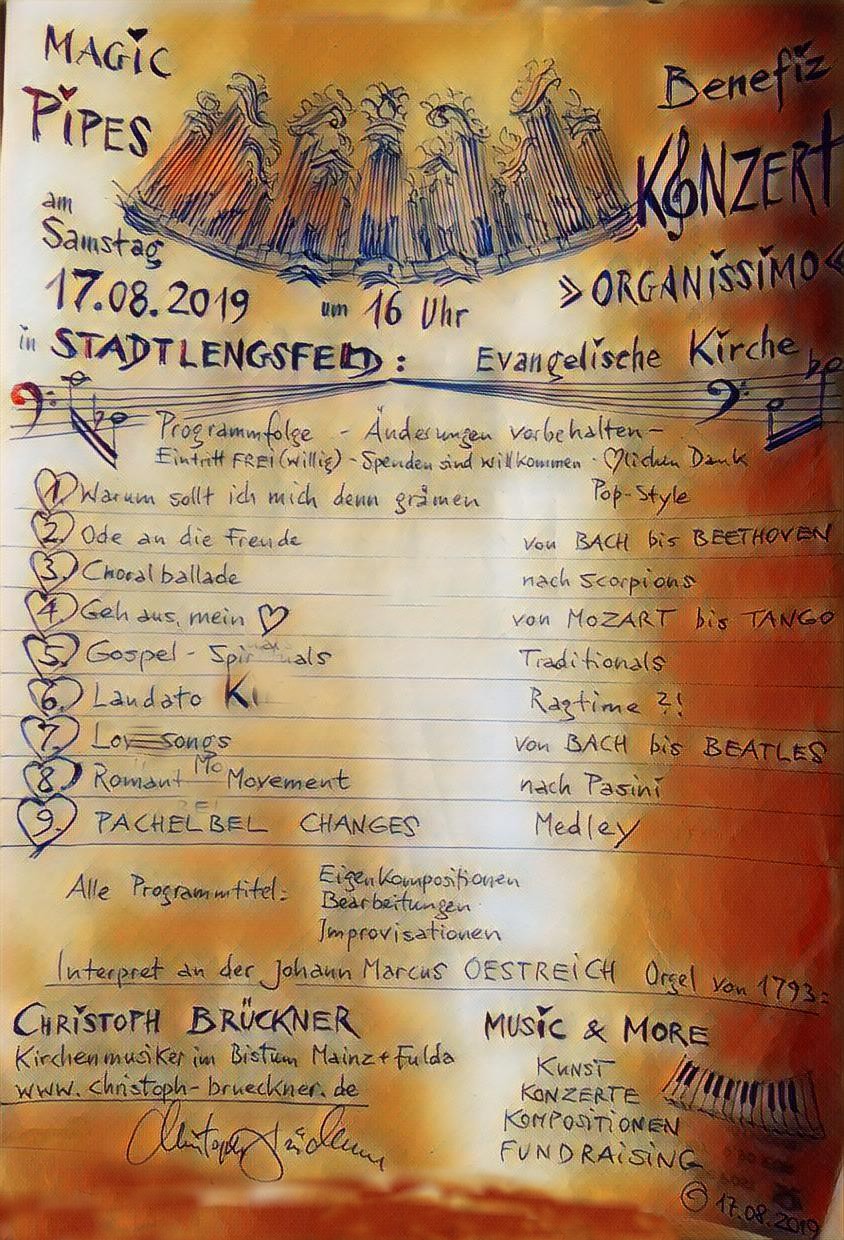 MAGiC
PiPES
Benefiz
KONZERt
am
Samstag
17.08.2019 um 16 Uhr
»ORGANiSSiMO«
in STADTLENGSFELD: Evangelische Kirche
Programmfolge - Änderungen vorbehalten -
Eintritt FREi(willig) - Spenden sind willkommen - ♡lichen Dank
1. Warum sollt ich mich denn grämen Pop-Style
2. Ode an die Freude von BACH bis BEETHOVEN
3. Choralballade nach Scorpions
4. Geh aus, mein ♡ von MOZART bis TANGO
5. Gospel - Traditionals
6. Laudato Ragtime ?!
7. Lovesongs von BACH bis BEATLES
8. Movement nach Pasini
9. PACHELBEL CHANGES Medley
Alle Programmtitel: Eigenkompositionen
Bearbeitungen
Improvisationen
Interpret an der Johann Marcus OESTREiCH Orgel von 1793:
CHRiSTOPH BRÜCKNER
Kirchenmusiker im Bistum Mainz + Fulda
www.christoph-brueckner.de
MUSiC & MORE
KUNST
KONZERTE
KOMPOSiTiONEN
FUNDRAiSiNG
© 17.08.2019